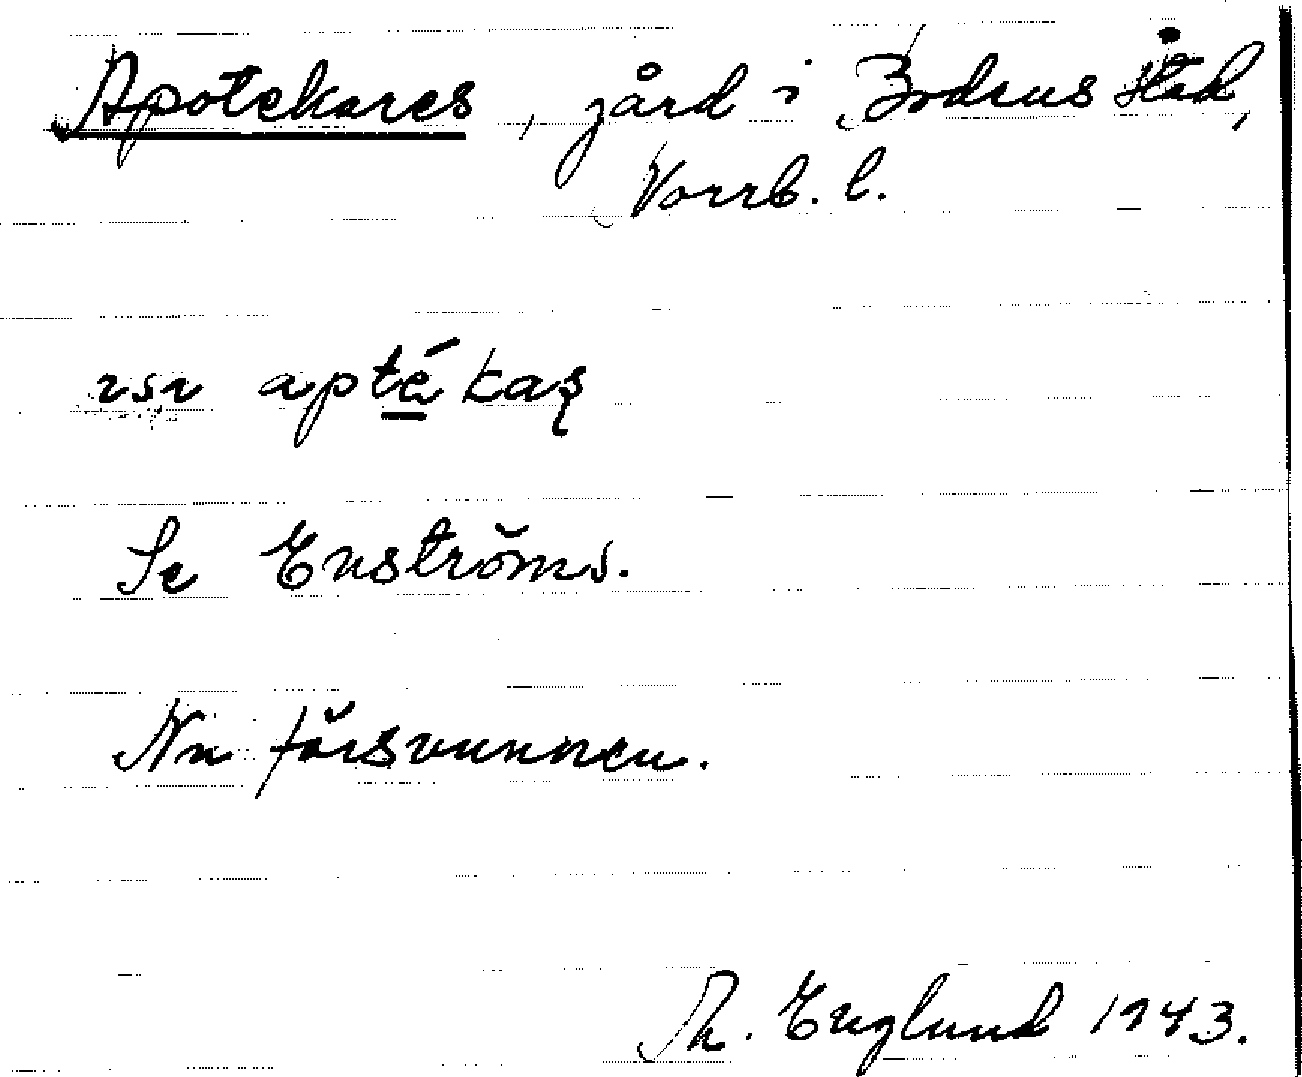 Apotekares, gård i Bodens stad,
Norrb. l.
rsv aptékaş
Se Enströms.
Nu försvunnen.
Th. Englund 1943.